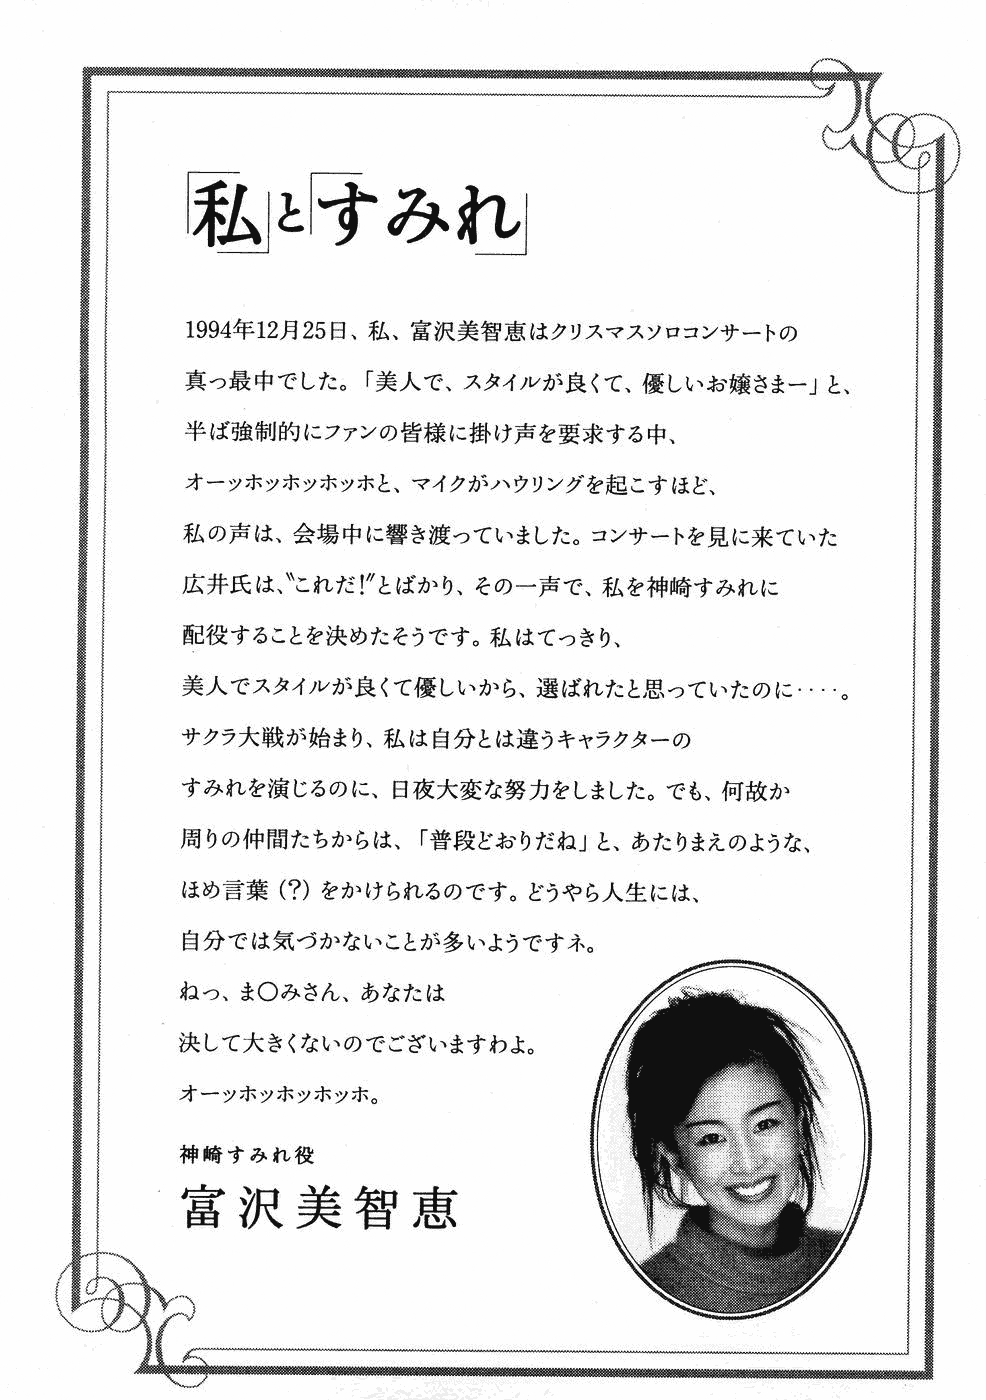 「私」と「すみれ」
1994年12月25日、私、富沢美智恵はクリスマスソロコンサートの
真っ最中でした。「美人で、スタイルが良くて、優しいお嬢さまー」と、
半ば強制的にファンの皆様に掛け声を要求する中、
オーッホッホッホッホと、マイクがハウリングを起こすほど、
私の声は、会場中に響き渡っていました。コンサートを見に来ていた
広井氏は、〝これだ!〟とばかり、その一声で、私を神崎すみれに
配役することを決めたそうです。私はてっきり、
美人でスタイルが良くて優しいから、選ばれたと思っていたのに‥‥。
サクラ大戦が始まり、私は自分とは違うキャラクターの
すみれを演じるのに、日夜大変な努力をしました。でも、何故か
周りの仲間たちからは、「普段どおりだね」と、あたりまえのような、
ほめ言葉（?）をかけられるのです。どうやら人生には、
自分では気づかないことが多いようですネ。
ねっ、ま〇みさん、あなたは
決して大きくないのでございますわよ。
オーッホッホッホッホ。
神崎すみれ役
富沢美智恵